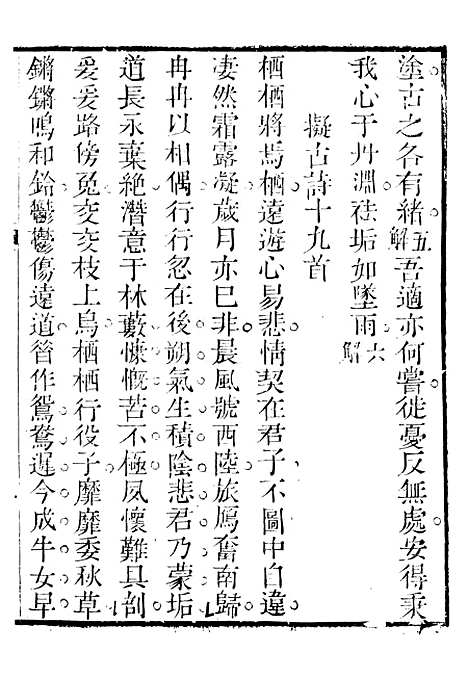 塗古之各有緒五解吾適亦何嘗徙憂反無處安得乘
我心于丹淵祛垢如墜雨六解
擬古詩十九首
栖栖將焉栖遠遊心易悲情契在君子不圖中自違
凄然霜露凝歲月亦已非晨風號西陸旅鴈奮南歸
冉冉以相偶行行忽在後朔氣生積陰悲君乃蒙垢
道長永棄絶潛意于林藪慷慨苦不極夙懷難具剖
爰爰路傍兔交交枝上烏栖栖行役子靡靡委秋草
鏘鏘鳴和鈴鬱鬱傷遠道昝作鴛鴦遲今成牛女早